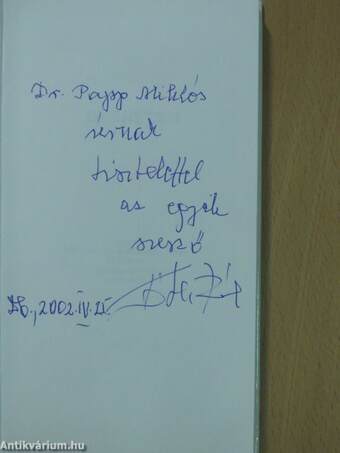 Dr. Papp Miklós
úrnak
tisztelettel
az egyik
szerző
Db., 2002. IV. 25.
Antikvárium.hu